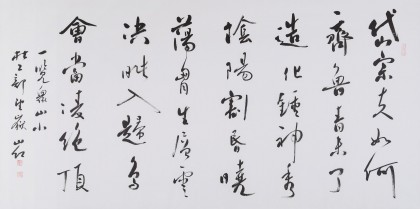 岱宗夫如何
齊魯青未了
造化鍾神秀
陰陽割昏曉
蕩胷生層雲
決眦入歸鳥
會當凌絕頂
一覽眾山小
杜工部望嶽